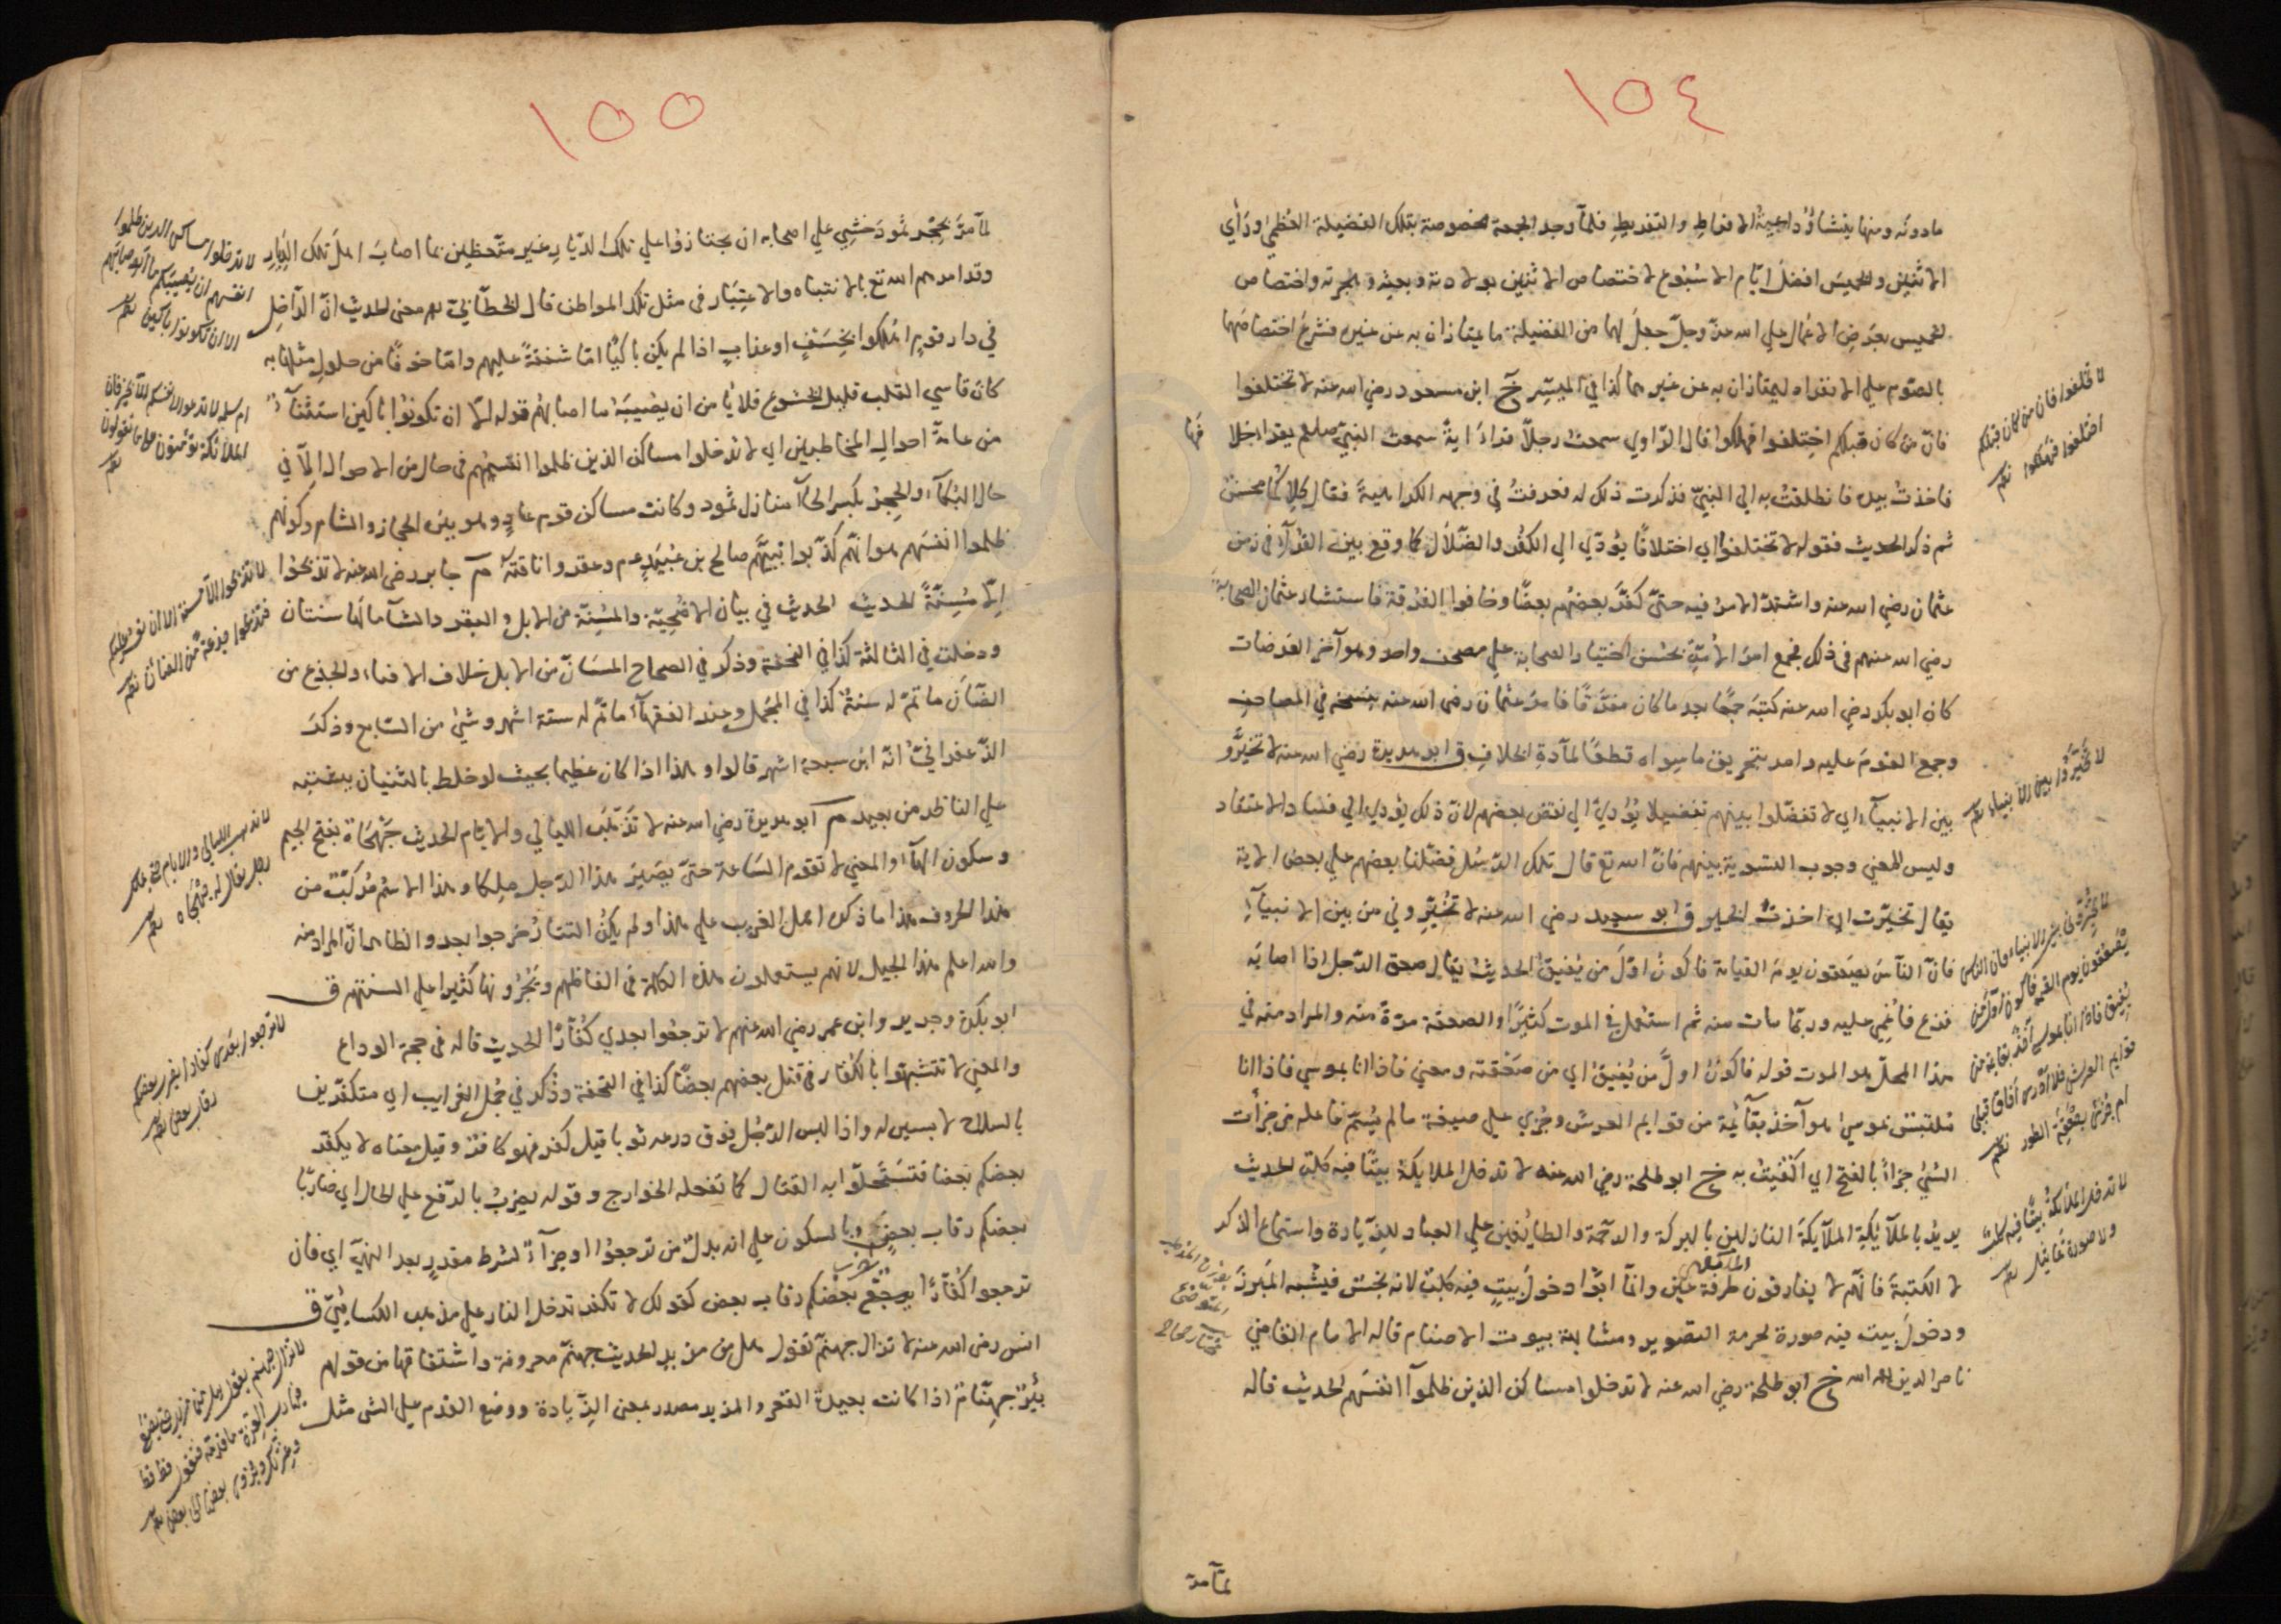 ١٥٤
ما دونه ومنها ينشأ داعية الافراط والتفريط فلما وجد الجمعة مخصوصة بتلك الفضيلة العظمى ورأي
الاثنين والخميس افضل ايام الاسبوع لاختصاص الاثنين بولادته وبعثه وهجرته واختصاص
الخميس بعرض الاعمال على الله عز وجل جعل لهما من الفضيلة ما يمتازان به عن غيره فشرع اختصاصهما
بالصوم على الانفراد ليمتازان به عن غيرهما كذا في الميسر خ ابن مسعود رضي الله عنه لا تختلفوا
فان من كان قبلكم اختلفوا فهلكوا قال الراوي سمعت رجلا قراء اية سمعت النبي صلعم يقرا خلا فها
فاخذت بيده فانطلقت به الى النبي فذكرت ذلك له فعرفت في وجهه الكراهية فقال كلاكما محسن
ثم ذكر الحديث فقوله لا تختلفوا اي اختلافا يؤدي الي الكفر والضلال كما وقع بين القراء في زمن
عثمان رضي الله عنه واشتد الامر فيه حتى كفر بعضهم بعضا وخافوا الفرقة فاستشار عثمان الصحابة
رضي الله عنهم في ذلك فجمع امر الامة بحسن اختيار الصحابة علي مصحف واحد وهو آخر العرضات
كان ابو بكر رضي الله عنه كتبه جمعا بعد ما كان مفرقا فامر عثمان رضى الله عنه بنسخه في المصاحف
وجمع القوم عليه وامر بتحريق ما سواه قطعا لمادة الخلاف ق ابو هريرة رضي الله عنه لا تخيروا
بين الانبياء اي لا تفضلوا بينهم تفضيلا يؤدي الي نقص بعضهم لان ذلك يؤدي الي فساد الاعتقاد
وليس المعني وجوب التسوية بينهم فان الله تع قال تلك الرسل فضلنا بعضهم علي بعض الاية
يقال تخيرت اي اخذت الخير ق ابو سعيد رضي الله عنه لا تخيروني من بين الانبياء
فان الناس يصعقون يوم القيامة فاكون اول من يفيق الحديث يقال صعق الرجل اذا اصابه
فزع فاغمي عليه وربما مات منه ثم استعمل في الموت كثيرا والصعقة مرة منه والمراد منه في
هذا المحل هو الموت قوله فاكون اول من يفيق اي من صعقته ومعني فاذا انا بموسي فاذا انا
ملتبس بموسي هو آخذ بقائمة من قوايم العرش وجزي علي صيغة ما لم يسم فاعله من جزأت
الشيء جزأ بالفتح اي اكتفيت به خ ابو طلحة رضي الله عنه لا تدخل الملايكة بيتا فيه كلب الحديث
يريد بالملائكة الملائكة النازلين بالبركة والرحمة والطايفين علي العباد للزيادة واستماع الذكر
لا الكتبة فانهم لا يفارقون المكلفين طرفة عين وانما ابوا دخول بيت فيه كلب لانه نجس فيشبه المبرز
ودخول بيت فيه صورة لحرمة التصوير ومشابهة بيوت الاصنام قاله الامام القاضي
ناصر الدين رحمه الله خ ابو طلحة رضي الله عنه لا تدخلوا مساكن الذين ظلموا انفسهم الحديث قاله
لما مر
لا تختلفوا فان من كان قبلكم
اختلفوا فهلكوا
لا تخيروا بين الانبياء
لا تخيروني من بين الانبياء فان الناس
يصعقون يوم القيمة فاكون اول من
يفيق فاذا انا بموسى آخذ بقائمة من
قوايم العرش فلا ادرى افاق قبلي
ام جزى بصعقة الطور
لا تدخل الملائكة بيتا فيه كلب
ولا صورة تماثيل
١٥٥
لما مر بحجر ثمود خشي علي اصحابه ان يجتازوا علي تلك الديار غير متحظين بما اصاب اهل تلك الديار
وقد امرهم الله تع بالانتباه والاعتبار في مثل تلك المواطن قال الخطابي معنى الحديث ان الداخل
في دار قوم اهلكوا بخسف او عذاب اذا لم يكن باكيا اما شفقة عليهم واما خوفا من حلول مثلها به
كان قاسي القلب قليل الخشوع فلا يامن ان يصيبه ما اصابهم قوله الا ان تكونوا باكين استثناء
من عامة احوال المخاطبين اي لا تدخلوا مساكن الذين ظلموا انفسهم في حال من الاحوال الا في
حال البكاء والحجر بكسر الحاء منازل ثمود وكانت مساكن قوم عاد وهو بين الحجاز والشام وكونهم
ظلموا انفسهم هو انهم كذبوا نبيهم صالح بن عبيد عم وعقروا ناقته م جابر رضى الله عنه لا تذبحوا
الا مسنة الحديث الحديث في بيان الاضحية والمسنة من الابل والبقر والشاء ما لها سنتان
ودخلت في الثالثة كذا في التحفة وذكر في الصحاح المسان من الابل خلاف الافتاء والجذع من
الضأن ما تم له سنة كذا في المجمل وعند الفقهاء ما تم له ستة اشهر وشيء من السابع وذكر
الزعفراني انه ابن سبعة اشهر قالوا وهذا اذا كان عظيما بحيث لو خلط بالثنيان يشتبه
علي الناظر من بعيد م ابو هريرة رضي الله عنه لا تذهب الليالي والايام الحديث جهجاه بفتح الجيم
وسكون الهاء والمعني لا تقوم الساعة حتى يصير هذا الرجل ملكا وهذا الاسم مركب من
هذا الحروف هذا ما ذكره اهل الغريب علي هذا ولم يكن التتار خرجوا بعد والظاهر ان المراد منه
والله اعلم هذا الجيل لانهم يستعملون هذه الكلمة في الفاظهم ويجرونها كثيرا علي السنتهم ق
ابو بكرة وجرير وابن عمر رضي الله عنهم لا ترجعوا بعدي كفارا الحديث قاله في حجة الوداع
والمعني لا تتشبهوا بالكفار في قتل بعضهم بعضا كذا في التحفة وذكر في مجمل الغرايب اي متكفرين
بالسلاح لابسين له واذا لبس الرجل فوق درعه ثوبا قيل كفر فهو كافر وقيل معناه لا يكفر
بعضكم بعضا فتستحلوا به القتال كما تفعله الخوارج وقوله يضرب بالرفع علي الحال اي ضاربا
بعضكم رقاب بعض وبالسكون علي انه بدل من ترجعوا او جزاء لشرط مقدر بعد النهي اي فان
ترجعوا كفارا يضرب بعضكم رقاب بعض كقولك لا تكفر تدخل النار علي مذهب الكسائي ق
انس رضي الله عنه لا تزال جهنم تقول هل من مزيد الحديث جهنم معروفة واشتقاقها من قولهم
بئر جهنام اذا كانت بعيدة القعر والمزيد مصدر بمعنى الزيادة ووضع القدم علي الشى مثل
لا تدخلوا مساكن الذين ظلموا
انفسهم ان يصيبكم ما اصابهم
الا ان تكونوا باكين
ام سلمة لا تدعوا على انفسكم الا بخير فان
الملائكة يؤمنون على ما تقولون
لا تذبحوا الا مسنة الا ان يعسر عليكم
فتذبحوا جذعة من الضان
لا تذهب الليالي والايام حتى يملك
رجل يقال له جهجاه
لا ترجعوا بعدى كفارا يضرب بعضكم
رقاب بعض
لا تزال جهنم تقول هل من مزيد حتى يضع
رب العزة فيها قدمه فتقول قط قط
وعزتك ويزوى بعضها الى بعض